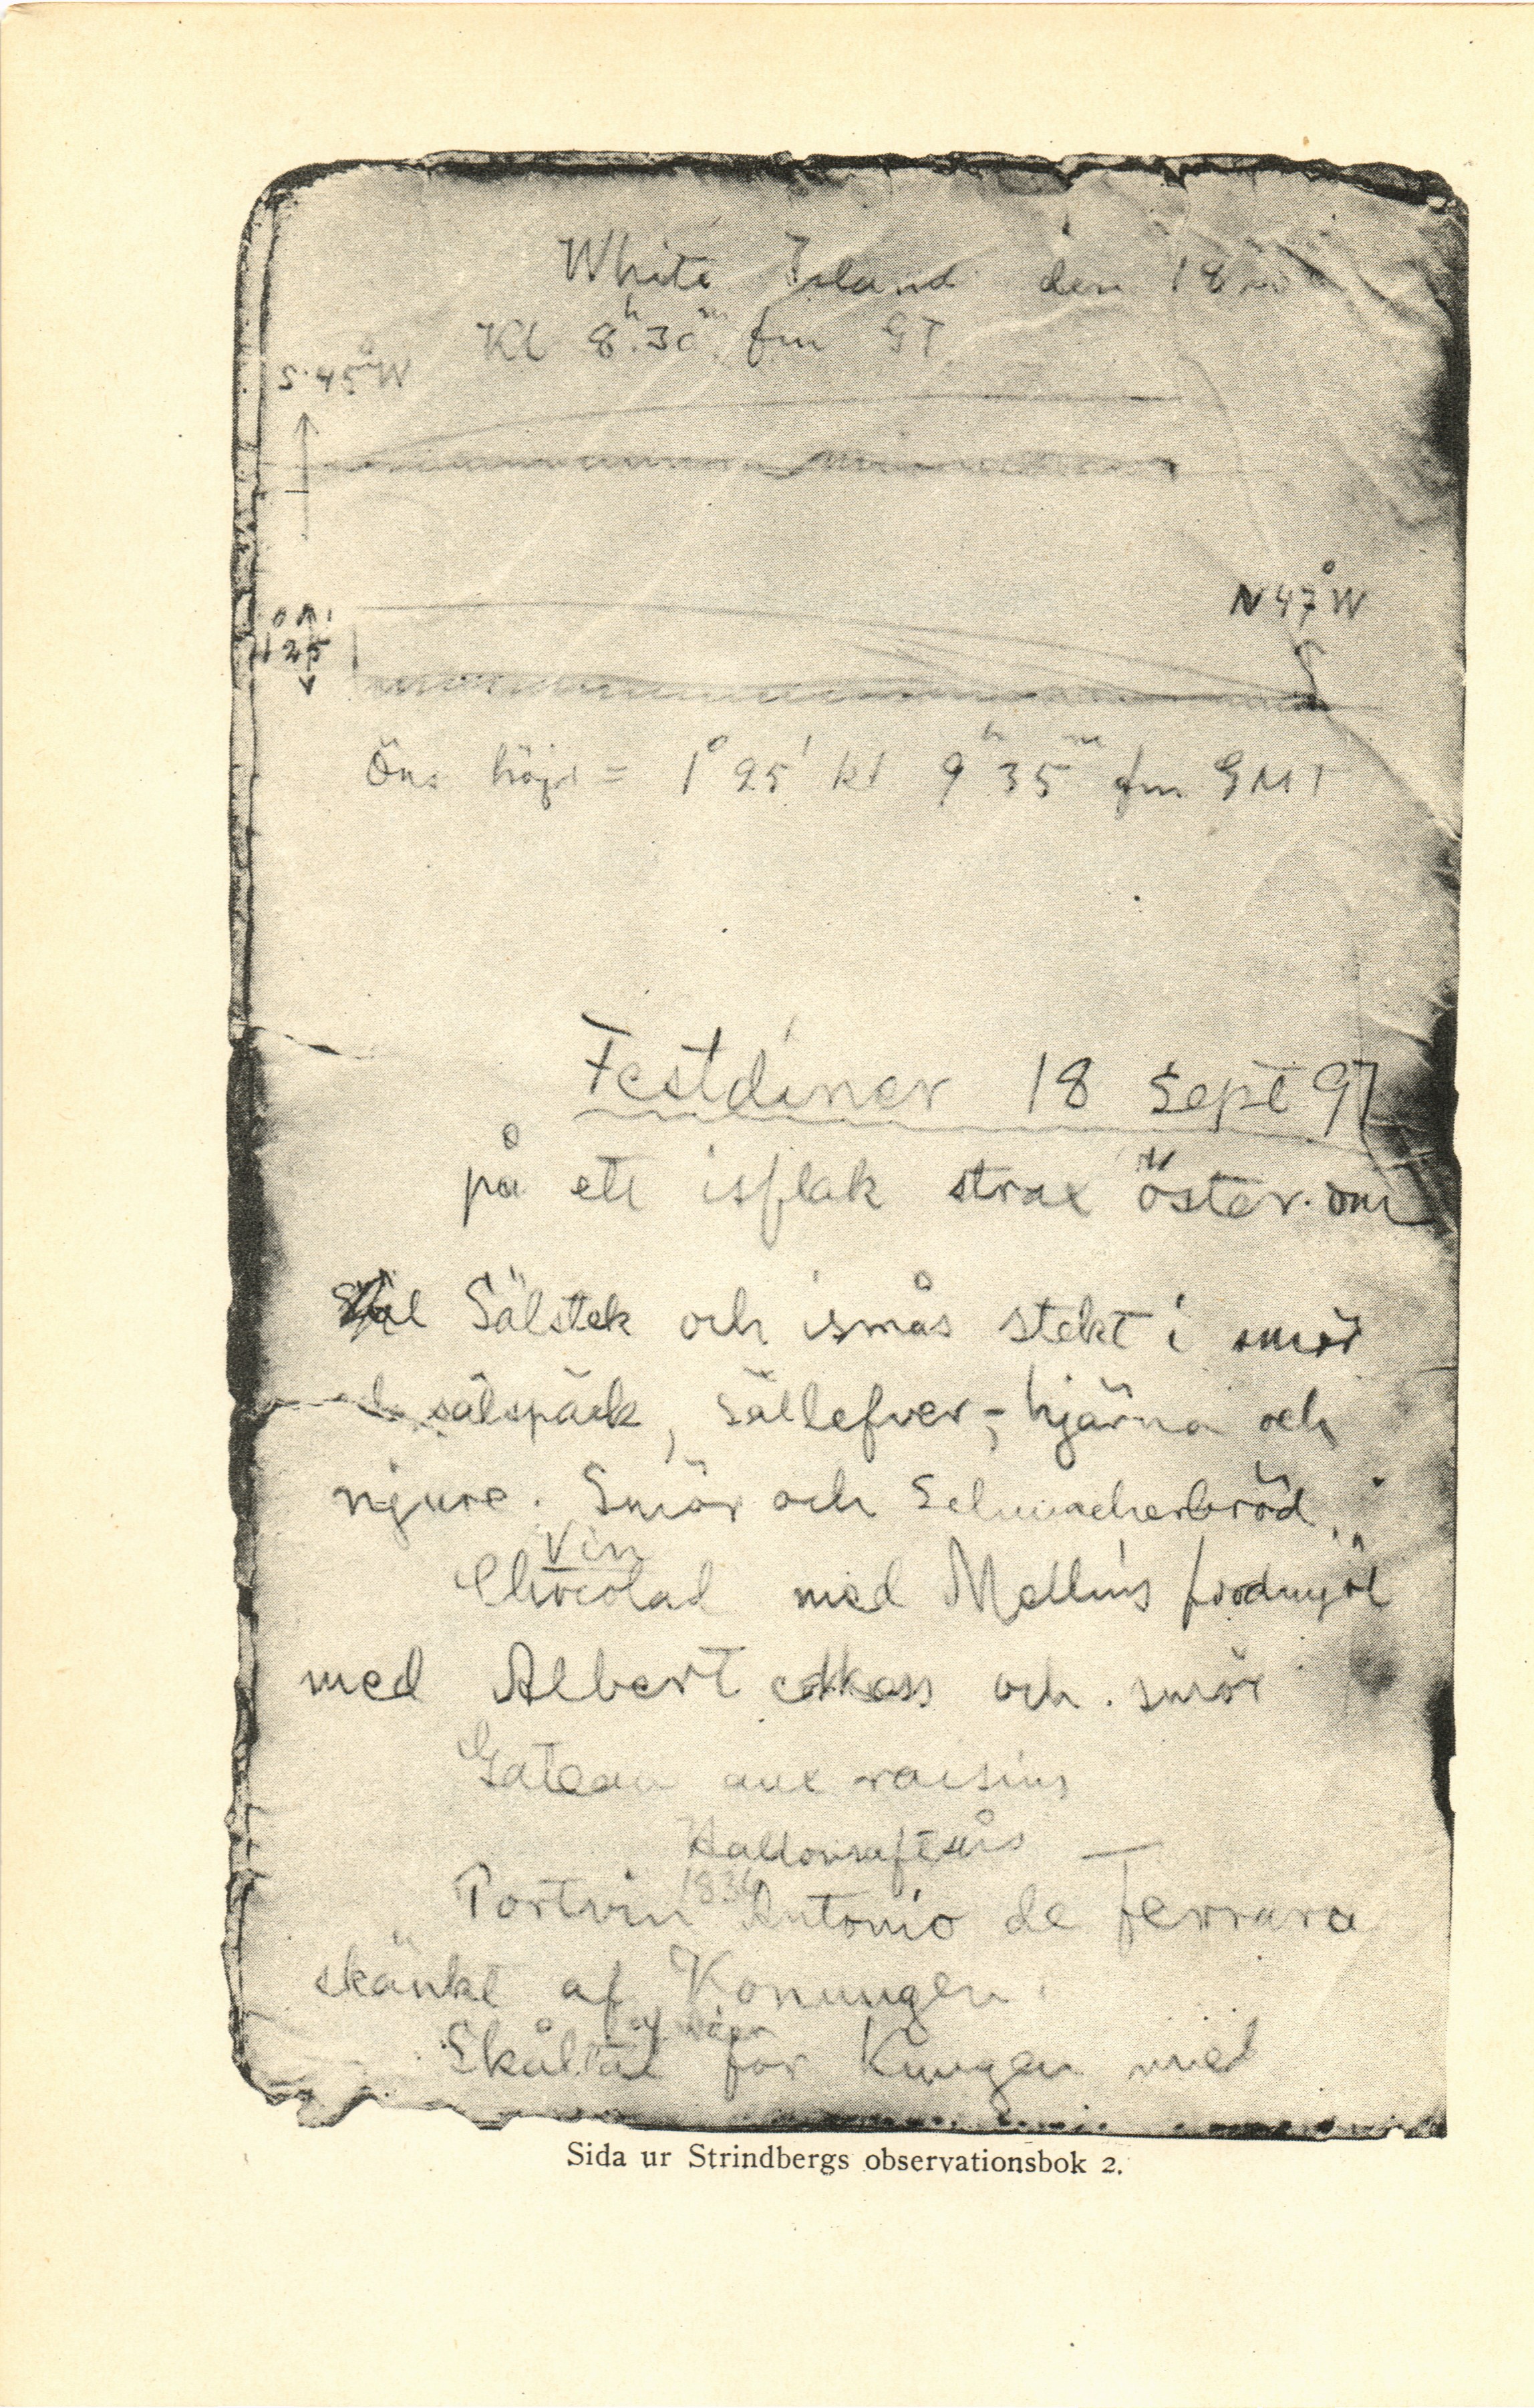 White Island den 18
Kl 8h.30m fm GT
S.45°W
N 47°W
1°25'
Öns höjd = 1°25' kl 9h 35m fm GMT
Festdiner 18 Sept 97
på ett isflak strax öster om
Sälstek och ismås stekt i smör
sälspäck, sällefver-, hjärna och
njure. Smör och Schumacherbröd.
Vin
Chocolad med Mellins foodmjöl
med Albert cakes och smör
Gateau aux raisins
Hallonsaftsås
Portvin 1834 Antonio de Ferrara
skänkt af Konungen.
af
Skåltal för Kungen med
Sida ur Strindbergs observationsbok 2.